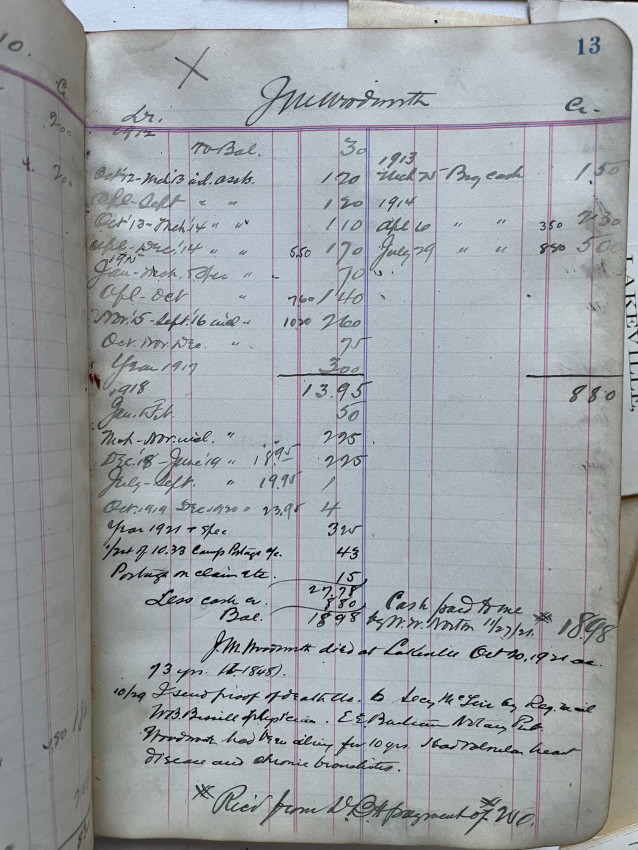 13
10.
Cr
200
200
J M Woodworth
Dr. Cr.
1912
To Bal. 30
1913
Oct '12 - Mch '13 incl. assts. 1 20 Mch 25 By cash 1.50
Apl - Sept " " 1 20 1914
Oct '13 - Mch '14 " " 1 10 Apl 10 " " 350 2 30
Apl - Dec. '14 " " 550 1 70 July 29 " " 880 5 00
1915
Jan - Mch. + Spec " 70
Apl - Oct 760 1 40
Nov. '15 - Sept. '16 incl " 1020 2 60
Oct. Nov. Dec. " 75
Year 1917 3 00
13.95 8 80
1918
Jan. Feb. 50
Mch - Nov. incl. " 2 25
Dec. '18 - June '19 " 18.95 2 25
July - Sept. " 19.95 1
Oct. 1919 Dec 1920 " 23.95 4
Year 1921 + Spec 3 25
of 10.33 Camp Postage 43
Postage on claim etc. 15
27.78
Less cash cr. 8 80
Bal. 18 98
Cash paid to me
by W. W. Norton 11/27/21. 1898
J.M. Woodworth died at Lakeville Oct 20, 1921 ae.
73 yrs. (b. 1848).
10/29 I send proof of death to Secy by Reg. mail
W.B. Bissell physician. E.E. Notary Pub.
Woodworth had been ailing for 10 yrs. had valvular heart
disease and chronic bronchitis.
Rec'd from payment of
LAKEVILLE,